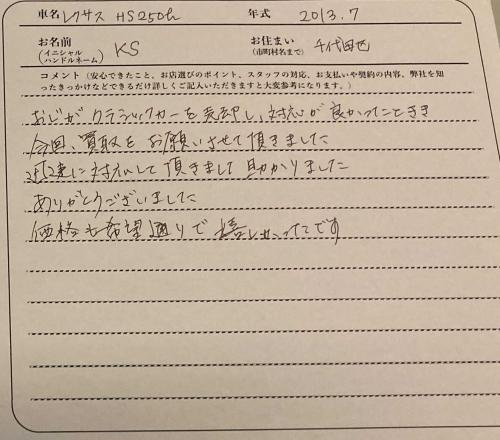 車名 レクサス HS250h 年式 2013.7
お名前 (イニシャル ハンドルネーム) KS お住まい (市町村名まで) 千代田区
コメント（安心できたこと、お店選びのポイント、スタッフの対応、お支払いや契約の内容、弊社を知
ったきっかけなどできるだけ詳しくご記入いただきますと大変参考になります。）
おじがクラシックカーを売却し、対応が良かったこときき
今回、買取をお願いさせて頂きました
迅速に対応して頂きまして助かりました
ありがとうございました
価格も希望通りで嬉しかったです